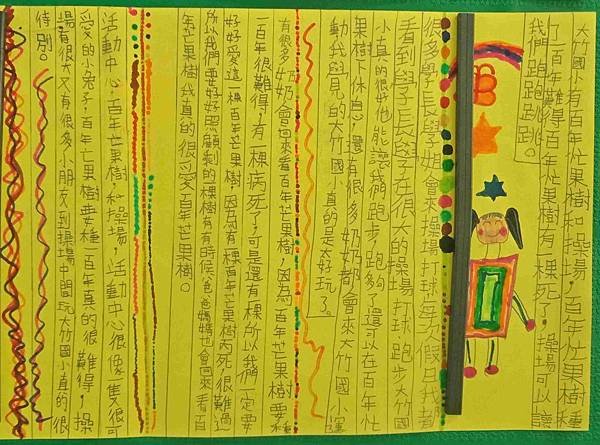 大竹國小有百年忙果樹和操場，百年忙果樹種
了百年難得百年忙果樹有一棵死了，操場可以讓
我們跑跑跳跳。
很多學長學姐會來操場打球每次假日我者
看到學長學在很大的操場打球，跑步大竹國
小真的很好他能讓我們跑步，跑夠了還可以在百年忙
果樹下休息，還有很多奶奶都會來大竹國小運
動我覺見的大竹國小真的是太好玩了。
有很多奶奶會回來看百年芒果樹，因為百年芒果樹要種
一百年很難得，有一棵病死了，可是還有棵所以我們一定要
好好愛這一棵百年芒果樹，因為有棵百年芒果樹丙死，很難過
所以我們要好好照顧剩的棵樹有有時候，爸爸媽媽也會回來看百
年芒果樹，我真的很愛百年芒果樹。
活動中心，百年芒果樹，和操場，活動中心很像隻很可
愛的小兔子，百年芒果樹要種一百年真的很難得，操
場有很大又有很多小朋友到操場中間玩大竹國小真的很
特別。